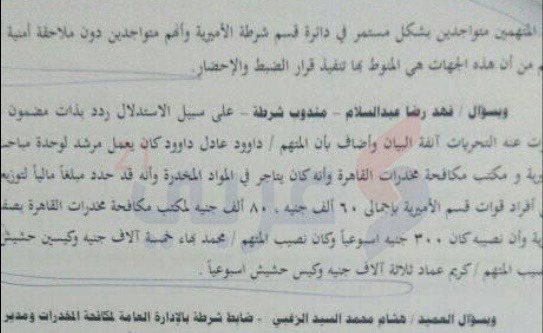 المتهمين متواجدين بشكل مستمر في دائرة قسم شرطة الأميرية وأنهم متواجدين دون ملاحقة أمنية
م من أن هذه الجهات هي المنوط بها تنفيذ قرار الضبط والإحضار.
وبسؤال / فهد رضا عبدالسلام – مندوب شرطة – على سبيل الاستدلال ردد بذات مضمون
ت عنه التحريات آنفة البيان وأضاف بأن المتهم / داوود عادل داوود كان يعمل مرشد لوحدة مباحث
يرية و مكتب مكافحة مخدرات القاهرة وأنه كان يتاجر في المواد المخدرة وأنه قد حدد مبلغاً مالياً لتوزيع
أفراد قوات قسم الأميرية بإجمالى ٦٠ ألف جنيه ، ٨٠ ألف جنيه لمكتب مكافحة مخدرات القاهرة بصف
ية وأن نصيبه كان ٣٠٠ جنيه اسبوعياً وكان نصيب المتهم / محمد بهاء خمسة آلاف جنيه وكيسين حشيش
صيب المتهم / كريم عماد ثلاثة آلاف جنيه وكيس حشيش اسبوعياً .
وبسؤال العميد / هشام محمد السيد الزغبي - ضابط شرطة بالإدارة العامة لمكافحة المخدرات ومدير
عربي 21